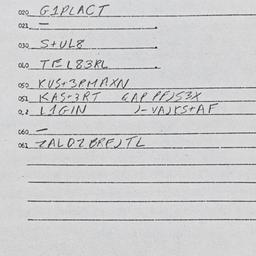 020 G1PLACT
021 –
030 S+UL8
040 TEL83RL
050 KUS+3PMAXN
051 KAS+3RT GAP PPJS3X
L1GIN J-VAJKS+AF
060 –
061 ZALOZBRFJTL